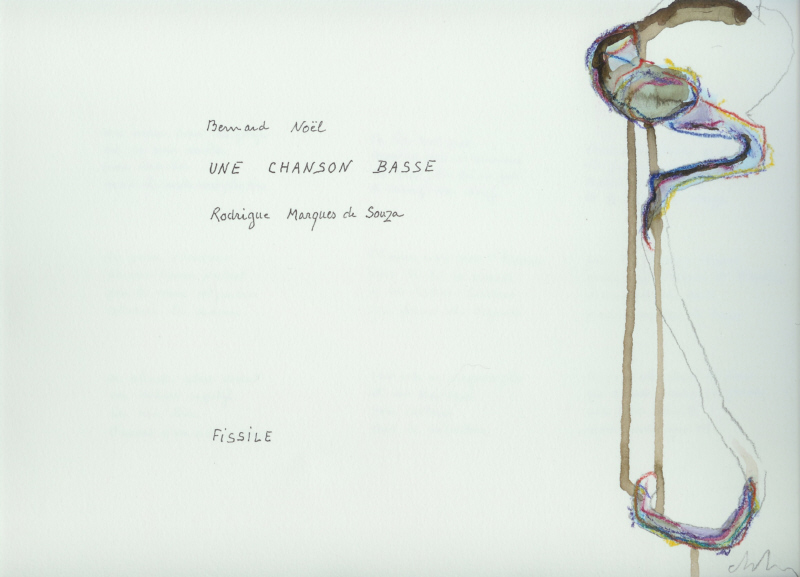 Bernard Noël
UNE CHANSON BASSE
Rodrigue Marques de Souza
FiSSiLE